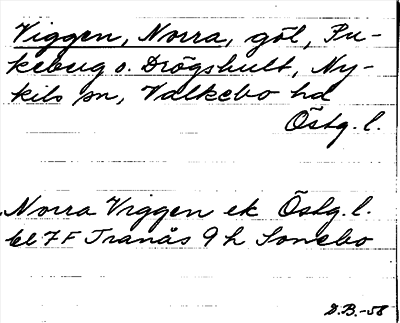 Viggen, Norra, göl, Pu-
keberg o. Drögshult, Ny-
kils sn, Valkebo hd
Östg. l.
Norra Viggen ek Östg. l.
bl 7F Tranås 9 h Sonebo
D.B.-58